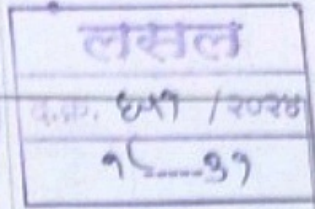 लसल
द.क्र. ६५१ /२०२४
१८----३१